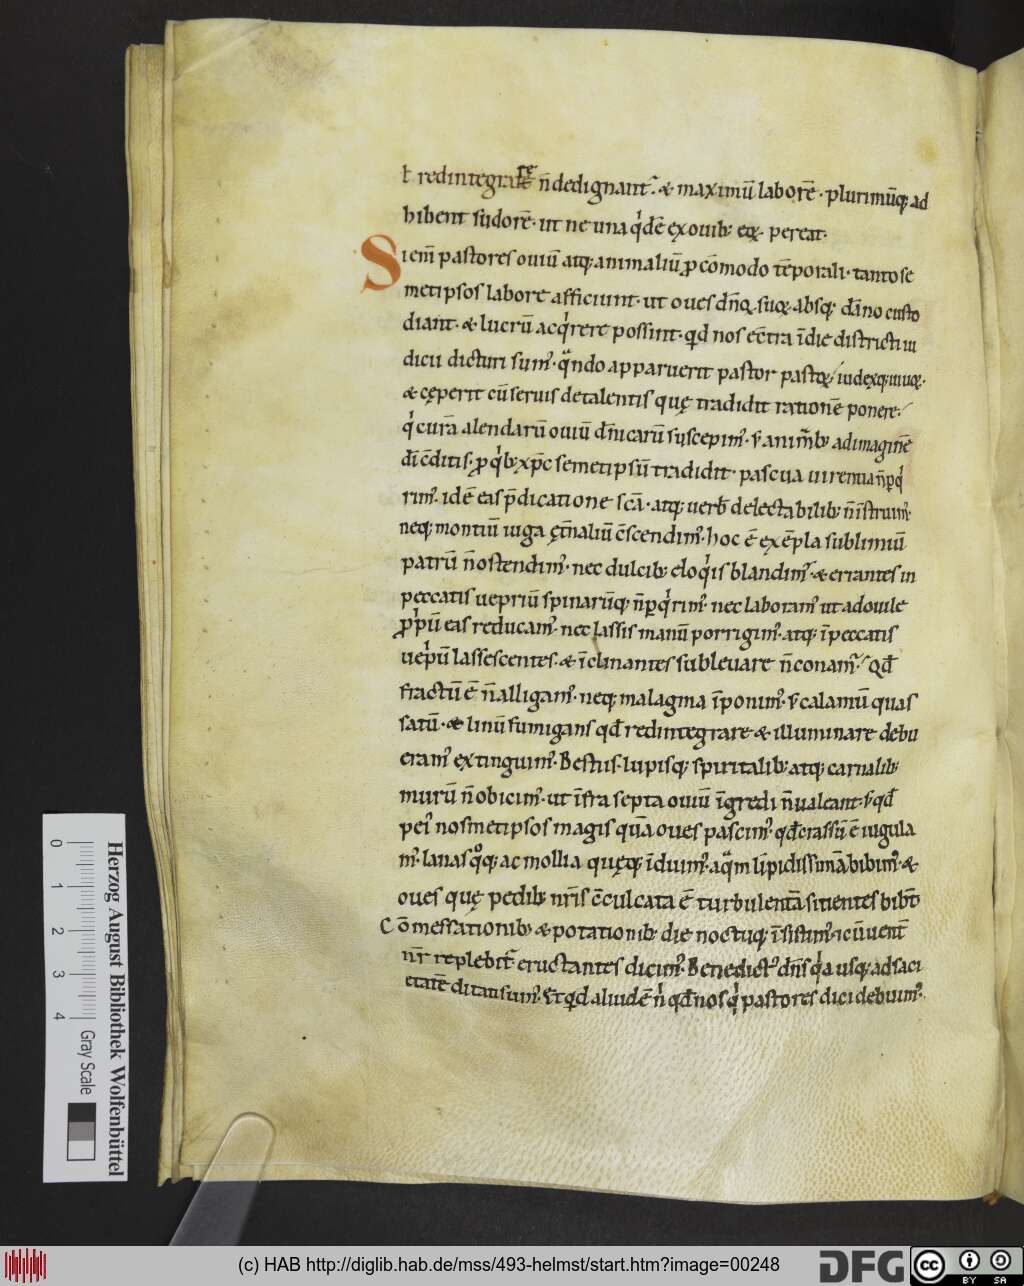 ł redintegrare n̄ dedignant᷒. & maximū laborē. plurimūq; ad
hibent sudorē. ut ne una q'dē ex ouib; eoꝝ pereat.
Si em̄ pastores ouiū atq; animaliū ꝓ cōmodo tēporali. tanto se
metipsos labore afficiunt. ut oues dn̄oꝝ suoꝝ absq; dāno custo
diant. & lucrū acq'rere possint. qd nos ec̄tra ī die districti iu
dicii dicturi sum᷒. qn̄do apparuerit pastor pastoꝝ iudexq; uiuoꝝ.
& cęperit cū seruis de talentis quę tradidit rationē ponere.
q' curā alendarū ouiū dn̄icarū suscepim᷒. ł animab; ad imaginē
dī c̄ditis. ꝓ q'b; xp̄c semetipsū tradidit. pascua uirentia n̄ ꝑq'
rim᷒. idē eas p̄dicatione sc̄a. atq; uerb̄ delectabilib; n̄ īstruim᷒.
neq; montiū iuga ęt̄naliū c̄scendim᷒. hoc ē exēpla sublimiū
patrū n̄ ostendim᷒. nec dulcib; eloq'is blandim᷒. & errantes in
peccatis uepriū spinarūq; n̄ ꝑq'rim᷒. nec laboram᷒ ut ad ouile
ꝓp'ū eas reducam᷒. nec lassis manū porrigim᷒. atq; ī peccatis
uep'ū lassescentes. & īclinantes subleuare n̄ conam᷒. Qd̄
fractū ē n̄ alligam᷒. neq; malagma īponim᷒. ł calamū quas
satū. & linū fumigans qd̄ redintegrare & illuminare debu
eram᷒ extinguim᷒. Bestiis. lupisq; spiritalib; atq; carnalib;
murū n̄ obicim᷒. ut īfra septa ouiū īgredi n̄ ualeant. ł qd̄
pei᷒ nosmetipsos magis quā oues pascim᷒. qd̄ crassū ē iugula
m᷒. lanas q°q; ac mollia quęq; īduim᷒. aq̄m līpidissimā bibim᷒. &
oues quę pedib; nr̄is c̄culcata ē turbulentā sitientes bibt̄
Cōmessationib; & potationib; die noctuq; īsistim᷒. & cū uent̄
nr̄ replebit᷒ eructantes dicim᷒. Benedict᷒ dn̄s q'a usq; ad saci
etatē ditati sum᷒. Et qd aliud ē n̄ qd̄ nos q' pastores dici debuim᷒.
Herzog August Bibliothek Wolfenbüttel
0 1 2 3 4
Gray Scale
(c) HAB http://diglib.hab.de/mss/493-helmst/start.htm?image=00248
DFG
cc
BY SA